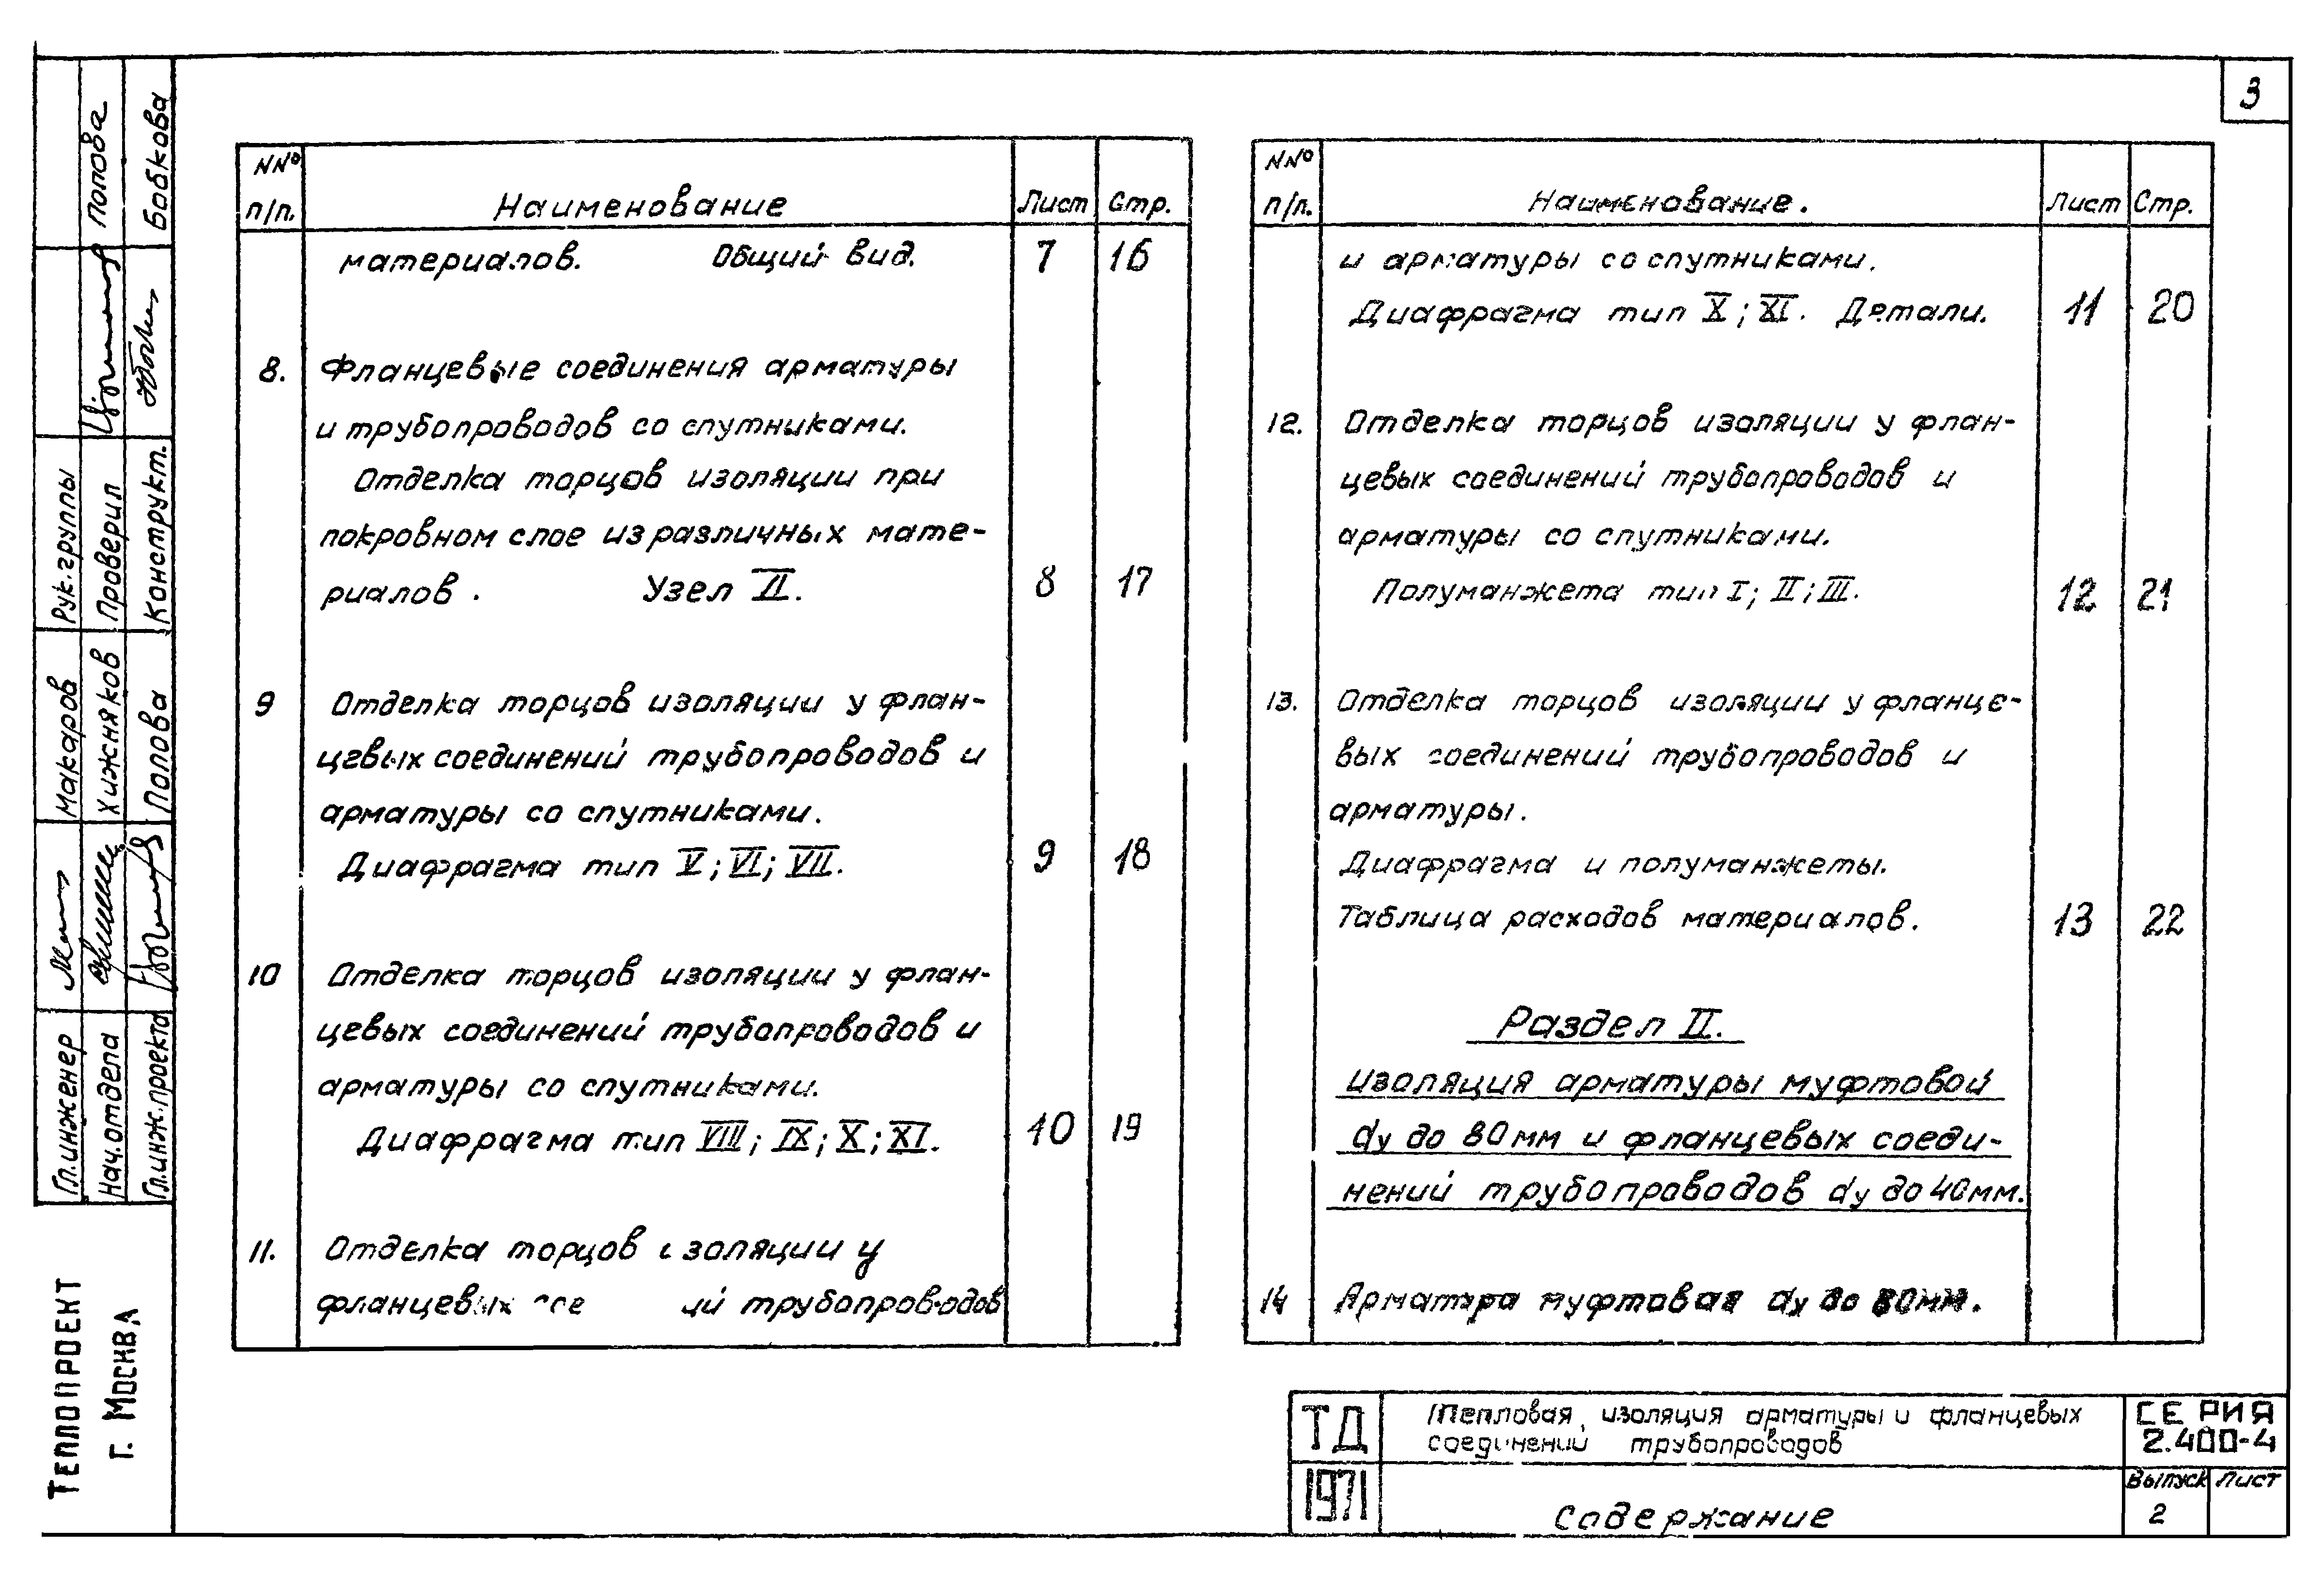 3
NNº п/п. Наименование Лист Стр.
материалов. Общий вид. 7 16
8. Фланцевые соединения арматуры
и трубопроводов со спутниками.
Отделка торцов изоляции при
покровном слое из различных мате-
риалов. Узел VI. 8 17
9 Отделка торцов изоляции у флан-
цевых соединений трубопроводов и
арматуры со спутниками.
Диафрагма тип V; VI; VII. 9 18
10 Отделка торцов изоляции у флан-
цевых соединений трубопроводов и
арматуры со спутниками.
Диафрагма тип VIII; IX; X; XI. 10 19
11. Отделка торцов изоляции у
фланцевых трубопроводов
NNº п/п. Наименование. Лист Стр.
и арматуры со спутниками.
Диафрагма тип X; XI. Детали. 11 20
12. Отделка торцов изоляции у флан-
цевых соединений трубопроводов и
арматуры со спутниками.
Полуманжета тип I; II; III. 12 21
13. Отделка торцов изоляции у фланце-
вых соединений трубопроводов и
арматуры.
Диафрагма и полуманжеты.
Таблица расходов материалов. 13 22
Раздел II.
изоляция арматуры муфтовой
dу до 80 мм и фланцевых соеди-
нений трубопроводов dу до 40 мм.
14 Арматура муфтовая dу до 80 мм.
ТД
1971
Тепловая изоляция арматуры и фланцевых
соединений трубопроводов
Содержание
СЕРИЯ
2.400-4
Выпуск Лист
2
Гл.инженер Макаров Рук.группы
Нач.отдела Хижняков Проверил Попова
Гл.инж.проекта Попова Конструкт. Бобкова
ТЕПЛОПРОЕКТ
г. МОСКВА